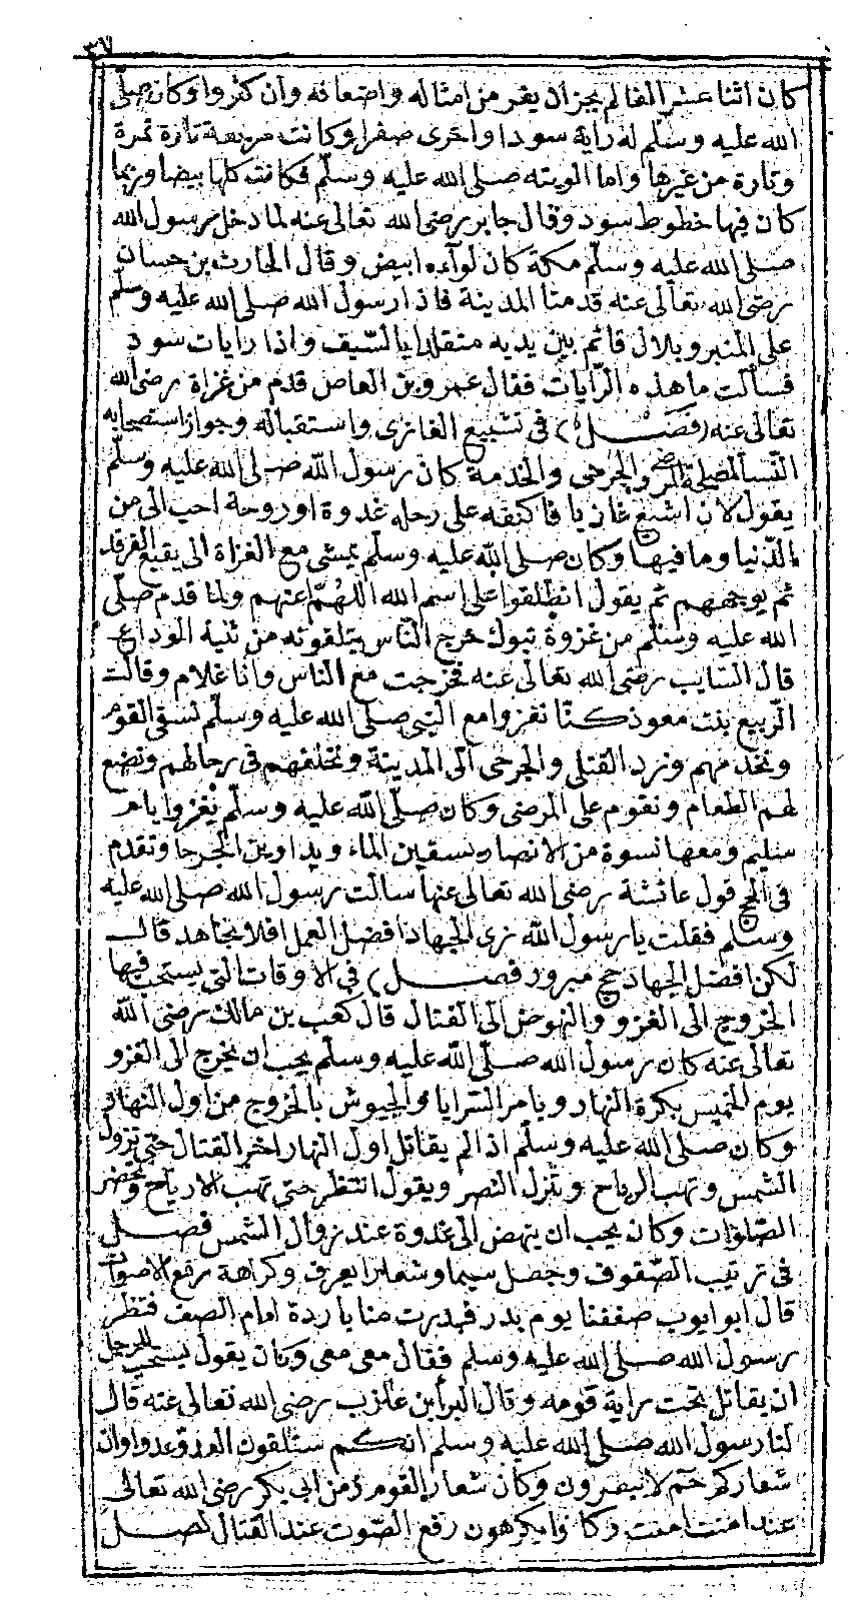 ٣٧
كان اثنا عشر الفا لم يجز ان يفر من امثاله واضعافه وان كثروا وكان صلى
الله عليه وسلم له راية سودا واخرى صفرا وكانت مربعة تارة نمرة
وتارة من غيرها واما الويته صلى الله عليه وسلم فكانت كلها بيضا وربما
كان فيها خطوط سود وقال جابر رضى الله تعالى عنه لما دخل رسول الله
صلى الله عليه وسلم مكة كان لواءه ابيض وقال الحارث بن حسان
رضى الله تعالى عنه قدمنا المدينة فاذا رسول الله صلى الله عليه وسلم
على المنبر وبلال قائم بين يديه متقلدا بالسيف واذا رايات سود
فسألت ما هذه الرايات فقال عمرو بن العاص قدم من غزاة رضى الله
تعالى عنه (فصل) فى تشييع الغازى واستقباله وجواز استصحابه
النسا لمصلحة المرضى والجرحى والخدمة كان رسول الله صلى الله عليه وسلم
يقول لان اشيع غازيا فاكنفه على رحله غدوة او روحة احب الى من
الدنيا وما فيها وكان صلى الله عليه وسلم يمشى مع الغزاة الى بقيع الغرقد
ثم يوجههم ثم يقول انطلقوا على اسم الله اللهم اعنهم ولما قدم صلى
الله عليه وسلم من غزوة تبوك خرج الناس يتلقونه من ثنية الوداع
قال السايب رضى الله تعالى عنه فخرجت مع الناس وانا غلام وقالت
الربيع بنت معوذ كنا نغزوا مع النبى صلى الله عليه وسلم نسقى القوم
ونخدمهم ونرد القتلى والجرحى الى المدينة ونخلفهم فى رحالهم ونصنع
لهم الطعام ونقوم على المرضى وكان صلى الله عليه وسلم يغزوا بام
سليم ومعها نسوة من الانصار يسقين الماء ويداوين الجرحا وتقدم
فى الحج قول عائشة رضى الله تعالى عنها سالت رسول الله صلى الله عليه
وسلم فقلت يا رسول الله نرى الجهاد افضل العمل افلا نجاهد قال
لكن افضل الجهاد حج مبرور فصل) فى الاوقات التى يستحب فيها
الخروج الى الغزو والنهوض الى القتال قال كعب بن مالك رضى الله
تعالى عنه كان رسول الله صلى الله عليه وسلم يحب ان يخرج الى الغزو
يوم الخميس بكرة النهار ويامر السرايا والجيوش بالخروج من اول النهار
وكان صلى الله عليه وسلم اذا لم يقاتل اول النهار اخر القتال حتى تزول
الشمس وتهب الرياح وتنزل النصر ويقول انتظر حتى تهب الارياح وتحضر
الصلوات وكان يحب ان ينهض الى غدوة عند زوال الشمس فصل
فى ترتيب الصفوف وجعل سيما وشعارا يعرف وكراهة رفع الاصوات
قال ابو ايوب صففنا يوم بدر فبدرت منا باردة امام الصف فنظر
رسول الله صلى الله عليه وسلم فقال معى معى وكان يقول يستحب للرجل
ان يقاتل تحت راية قومه وقال البرا بن عازب رضى الله تعالى عنه قال
لنا رسول الله صلى الله عليه وسلم انكم ستلقون العدو غدا وان
شعاركم حم لا ينصرون وكان شعار القوم زمن ابى بكر رضى الله تعالى
عنه امت امت وكانوا يكرهون رفع الصوت عند القتال فصل